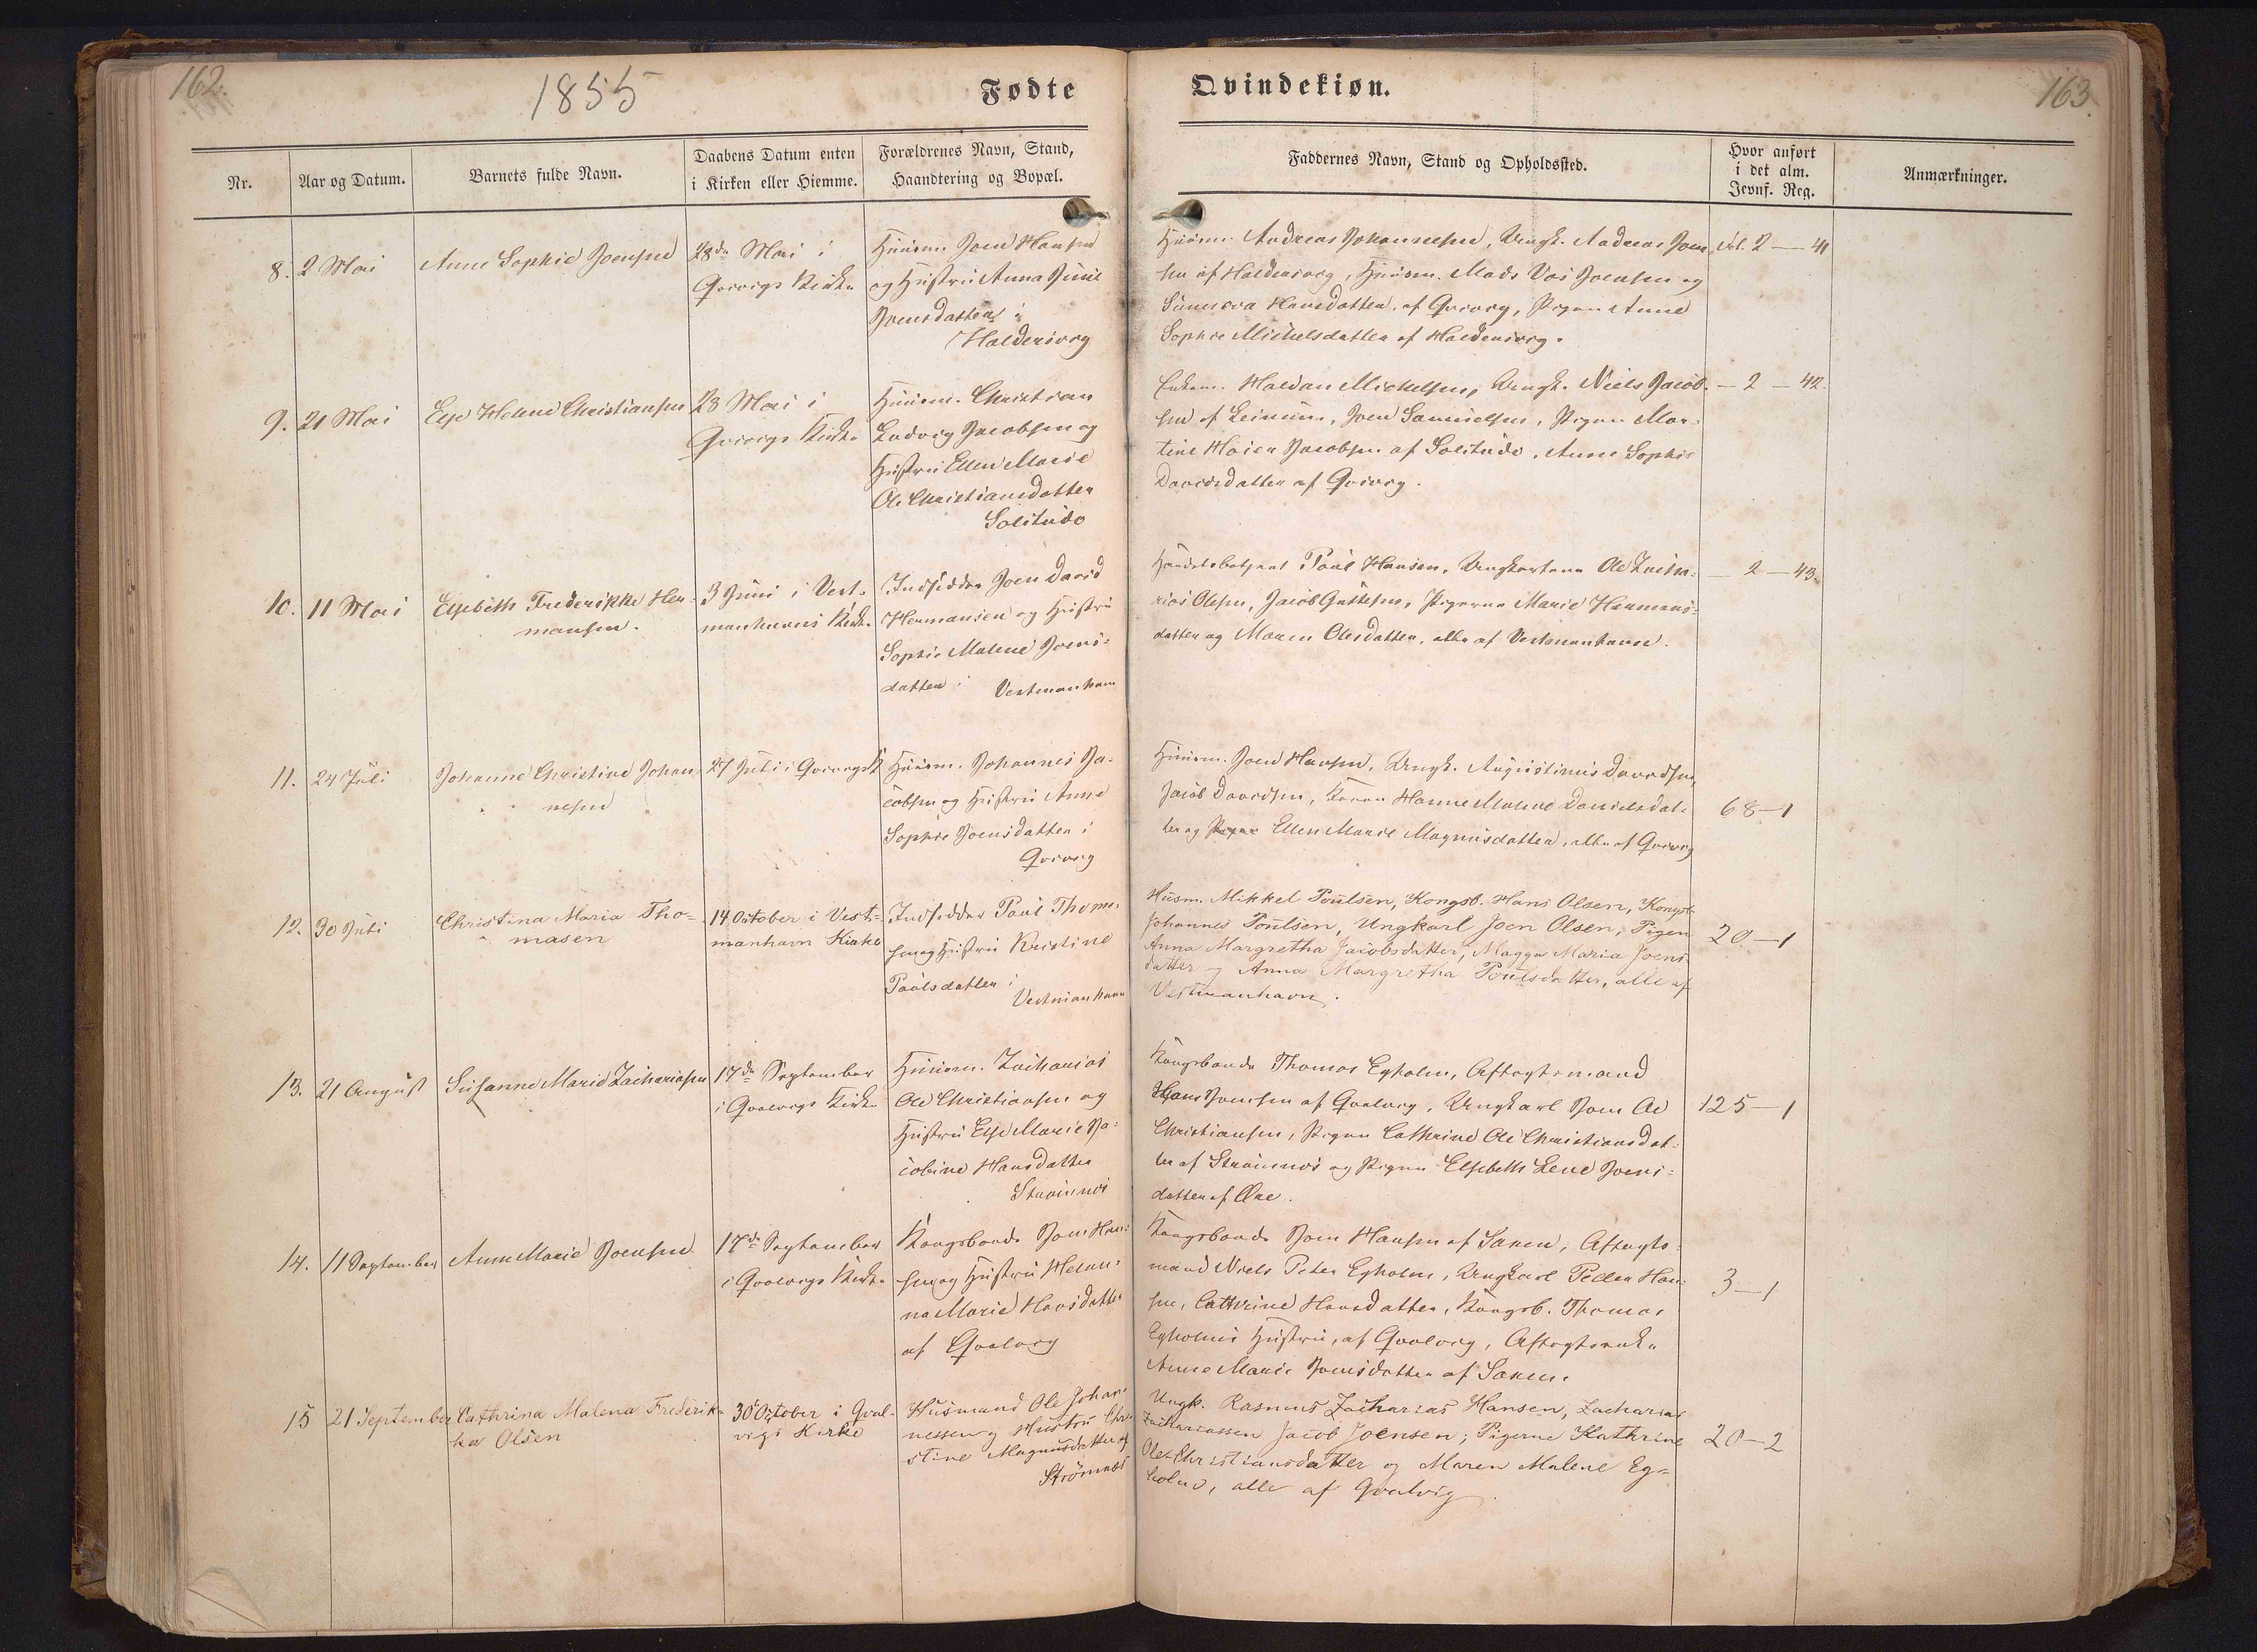 162.
1855
Fødte
Qvindekiøn.
163.
Nr.
Aar og Datum.
Barnets fulde Navn.
Daabens Datum enten
i Kirken eller Hiemme.
Forældrenes Navn, Stand,
Haandtering og Bopæl.
Faddernes Navn, Stand og Opholdssted.
Hvor anført
i det alm.
Jevnf. Reg.
Anmærkninger.
8.
2 Mai
Anne Sophie Joensen
28de Mai i
Qvivigs Kirke
Huusm. Joen Hansen
og Hustru Anna
Joensdatter i
Haldersvig
Huusm. Andreas Johannesen, Ungk. Andreas Joen
sen af Haldersvig, Huusm. Mads Joensen og
Hansdatter, af Qvivig, Pigen Anne
Sophie Michelsdatter af Haldersvig.
Fol. 2 — 41
9.
21 Mai
Else Helene Christiansen
28 Mai i
Qvivigs Kirke
Huusm. Christian
Ludvig Jacobsen og
Hustru Ellen Marie
Ole Christiansdatter
Solitude
Haldan Michelsen, Ungk. Niels Jacob-
sen af Leinum, Joen Samuelsen, Pigen Mar-
tine Jacobsen af Solitude, Anne Sophie
Davidsdatter af Qvivig.
— 2 — 42.
10.
11 Mai
Elsebeth Frederikke Her-
mansen.
3 Juni i Vest-
manhavns Kirke
Indsidder Joen David
Hermansen og Hustru
Sophie Malene Joens-
datter i Vestmanhavn
Handelsbetjent Poul Hansen, Ungkarlene Ole Zacha-
rias Olesen, Jacob Guttesen, Pigerne Marie Hermans-
datter og Maren Olesdatter, alle af Vestmanhavn.
— 2 — 43.
11.
24 Juli
Johanne Christine Johan-
nesen
27 Juli i Qvivigs K
Huusm. Johannes Ja-
cobsen og Hustru Anne
Sophie Joensdatter i
Qvivig
Huusm. Joen Hansen, Ungk. Augustinus Davidsen,
Jacob Davidsen, Konen Hanne Malene Danielsdat-
ter og Pigen Ellen Marie Magnusdatter, alle af Qvivig
68—1
12.
30 Juli
Christina Maria Tho-
masen
14 October i Vest-
manhavn Kirke
Indsidder Poul Thoma-
sen og Hustru Kristine
Poulsdatter i
Vestmanhavn
Husm. Mikkel Poulsen, Kongsb. Hans Olsen, Kongsb.
Johannes Poulsen, Ungkarl Joen Olsen, Pigen
Anna Margretha Jacobsdatter, Magga Maria Joens
datter og Anna Margretha Poulsdatter, alle af
Vestmanhavn.
20—1
13.
21 August
Susanne Marie Zachariasen
17de September
i Qvalvigs Kirke
Huusm. Zacharias
Ole Christiansen og
Hustru Else Marie Ja-
cobine Hansdatter
Strømnæs
Kongsbonde Thomas Egholm, Aftægtsmand
Hans Joensen af Qvalvig, Ungkarl Joen Ole
Christiansen, Pigen Cathrine Ole Christiansdat-
ter af Strømnæs og Pigen Elsebeth Lene Joens-
datter af Øre.
125—1
14.
11 September
Anne Marie Joensen
17de September
i Qvalvigs Kirke
Kongsbonde Joen Han-
sen og Hustru Helan-
na Marie Hansdatter
af Qvalvig
Kongsbonde Joen Hansen af Saxen, Aftægts-
mand Niels Peter Egholm, Ungkarl Peder Han-
sen, Cathrine Hansdatter, Kongsb. Thomas
Egholms Hustru, af Qvalvig, Aftægtsenke
Anne Marie Joensdatter af Saxen.
3—1
15
21 September
Cathrina Malena Frederik-
ka Olsen
30 October i Qval-
vigs Kirke
Husmand Ole Johan-
nessen og Hustru Chri-
stine Magnusdatter af
Strømnæs
Ungk. Rasmus Zacharias Hansen, Zacharias
Zachariassen Jacob Joensen; Pigerne Kathrine
Ole Christiansdatter og Maren Malene Eg-
holm, alle af Qvalvig.
20—2